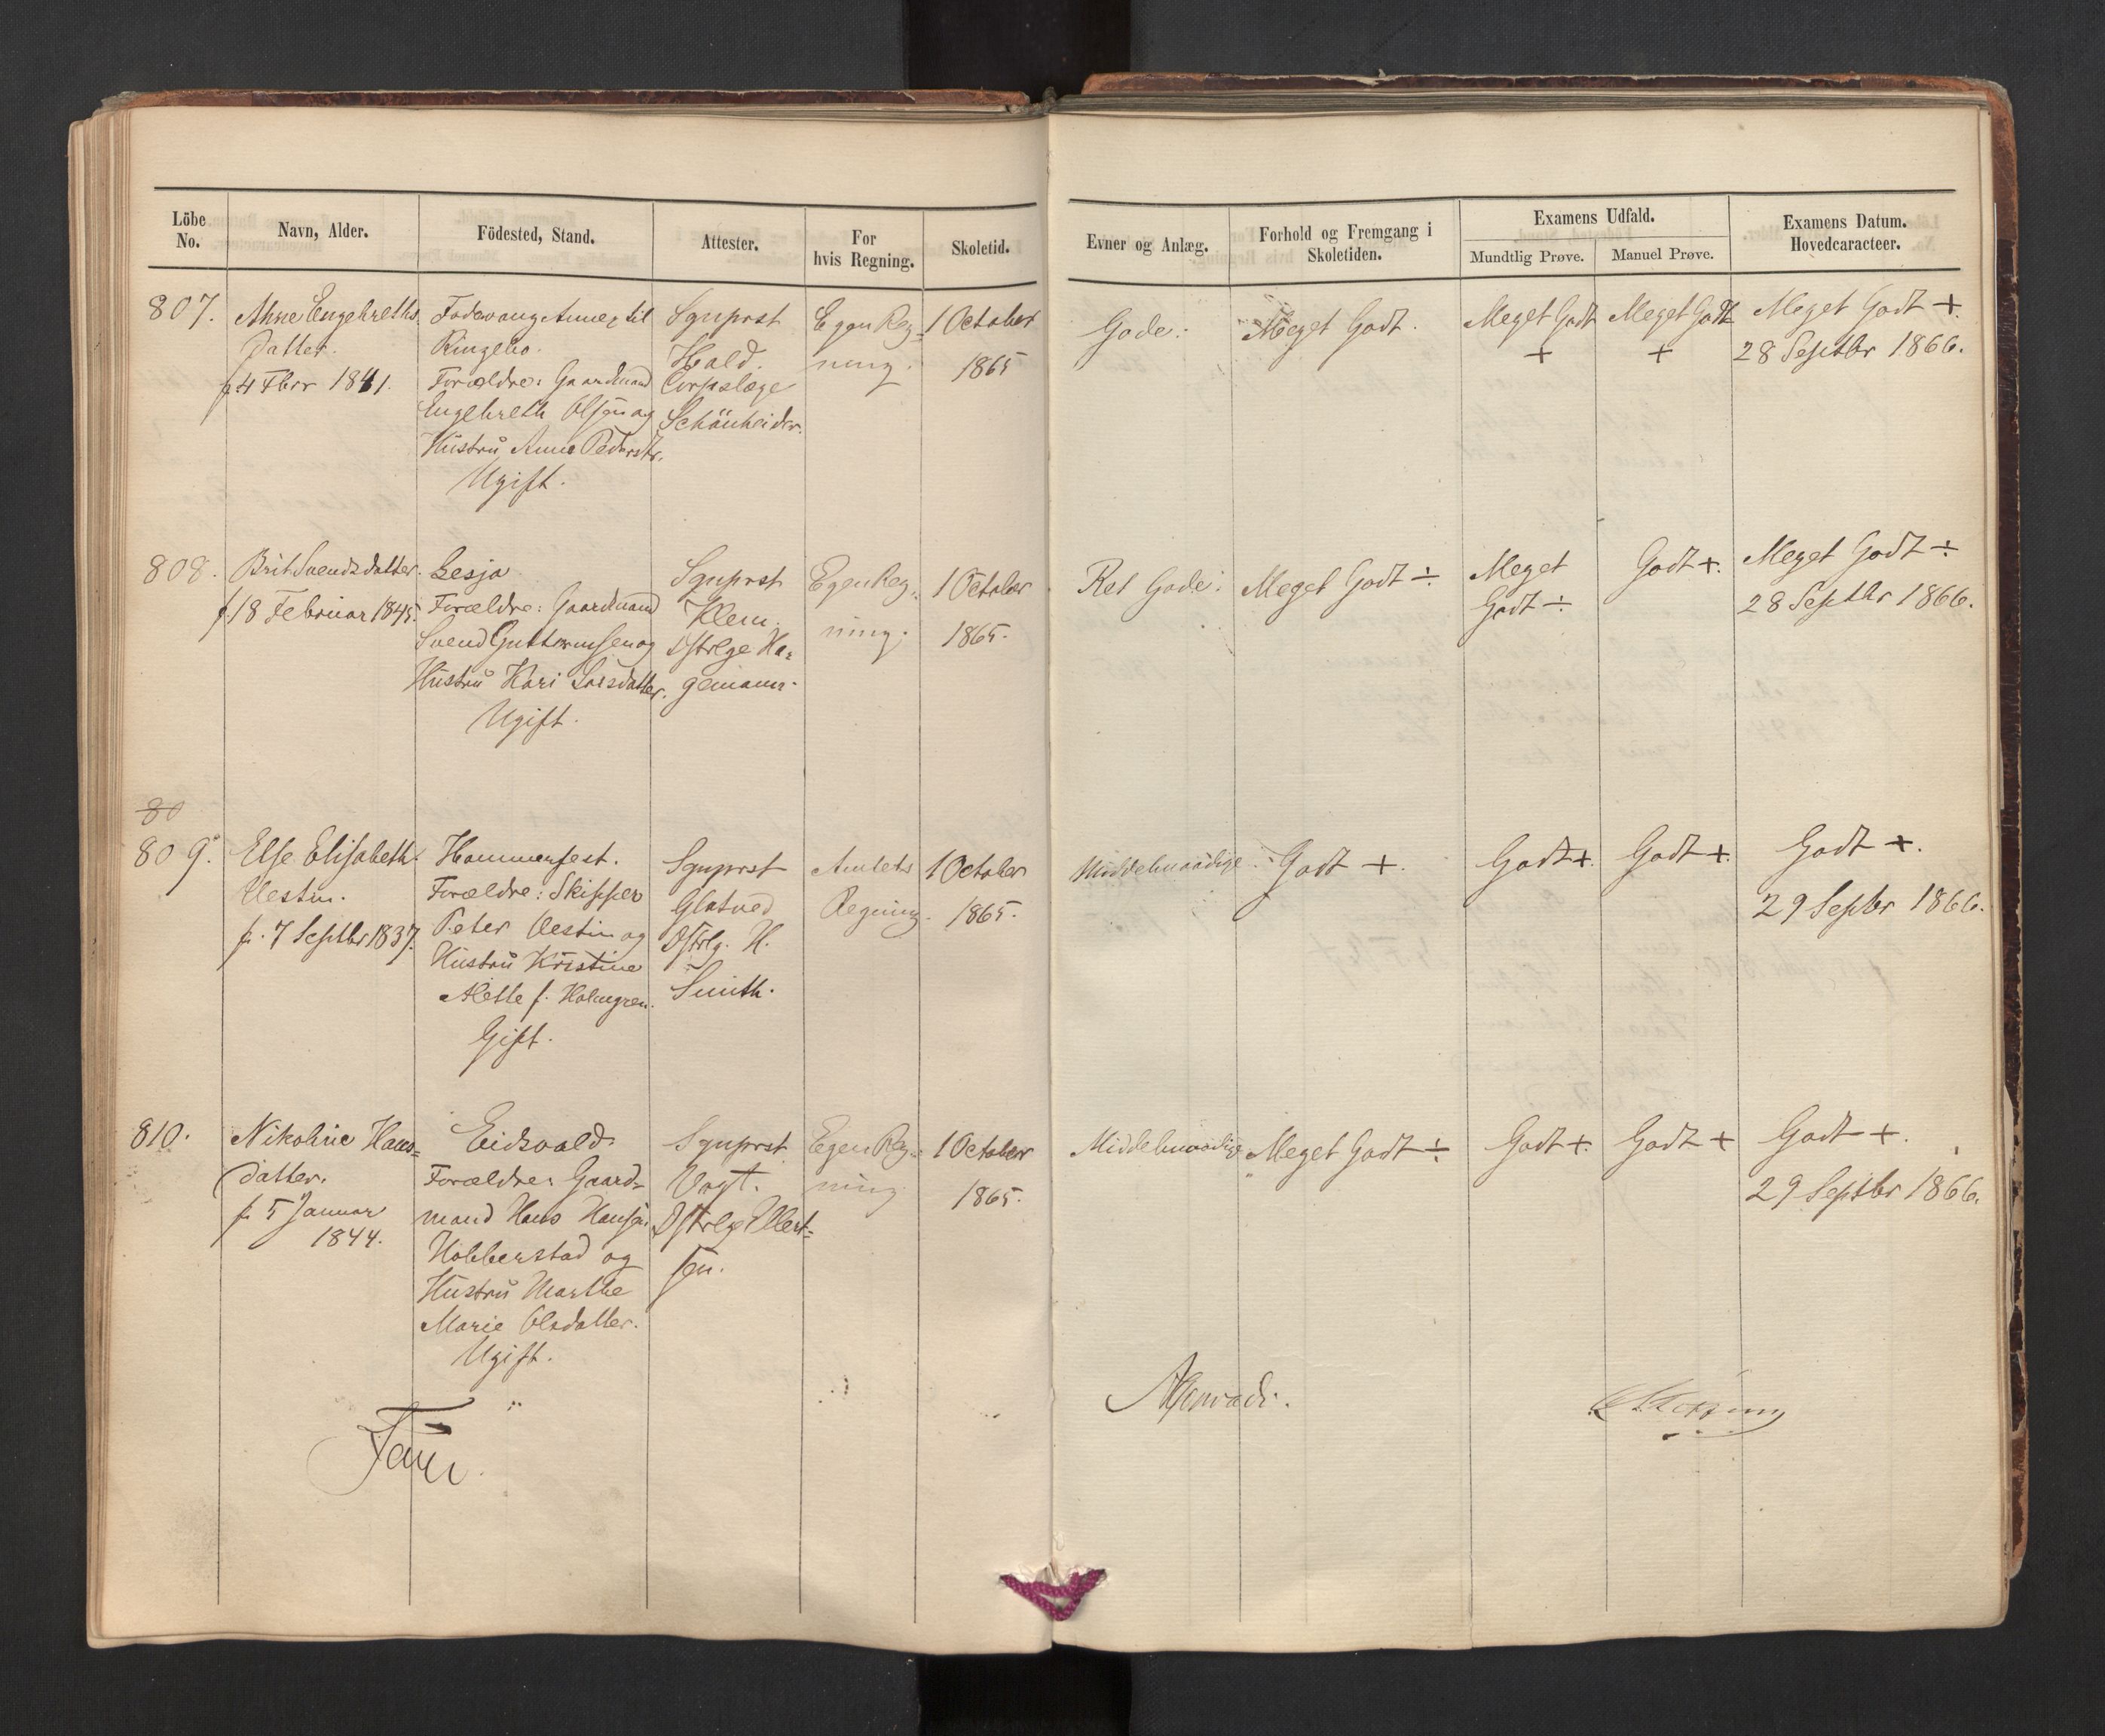 Löbe No.
Navn, Alder.
Födested, Stand.
Attester.
For hvis Regning.
Skoletid.
Evner og Anlæg.
Forhold og Fremgang i Skoletiden.
Examens Udfald.
Mundtlig Prøve.
Manuel Prøve.
Examens Datum. Hovedcaracteer.
807.
Anne Engebreths
datter.
f. 4 Fbrr 1841.
Fodvang Annex til
Ringebo.
Forældre: Gaardmand
Engebreth Olsen og
Hustru Anne Pedersdtr.
Ugift.
Sgnprst
Hald.
Corpslæge
Schönheider.
Egen Reg=
ning.
1 October
1865
Gode.
Meget Godt.
Meget Godt
+
Meget Godt
+
Meget Godt +.
28 Septbr 1866.
808.
Brit Svendsdatter.
f. 18 Februar 1845.
Lesja
Forældre: Gaardmand
Svend Guttormsen og
Hustru Kari Larsdatter.
Ugift.
Sgnprst
Klem.
Dstrlge Ha=
gemann.
Egen Reg=
ning.
1 October
1865.
Ret Gode.
Meget Godt ÷.
Meget
Godt ÷
Godt +.
Meget Godt ÷
28 Septbr 1866.
80
809.
Else Elisabeth
Vestin.
f. 7 Septbr 1837.
Hammerfest.
Forældre: Skipper
Peter Vestin og
Hustru Kristine
Mette f. Holmgren.
Gift.
Sgnprst
Glatved
Dstrlg. H.
Smith.
Amtets
Regning.
1 October
1865.
Middelmaadige
Godt +.
Godt +.
Godt +.
Godt +.
29 Septbr 1866.
810.
Nikoline Hans=
datter.
f. 5 Januar
1844.
Eidsvold.
Forældre: Gaard=
mand Hans Hansen
Habberstad og
Hustru Marthe
Marie Olsdatter.
Ugift.
Sgnprst
Vogt.
Dstrlge Ellert=
sen.
Egen Reg=
ning
1 October
1865.
Middelmaadige
Meget Godt ÷
Godt +.
Godt +
Godt +.
29 Septbr 1866.
Faye
AConradi.